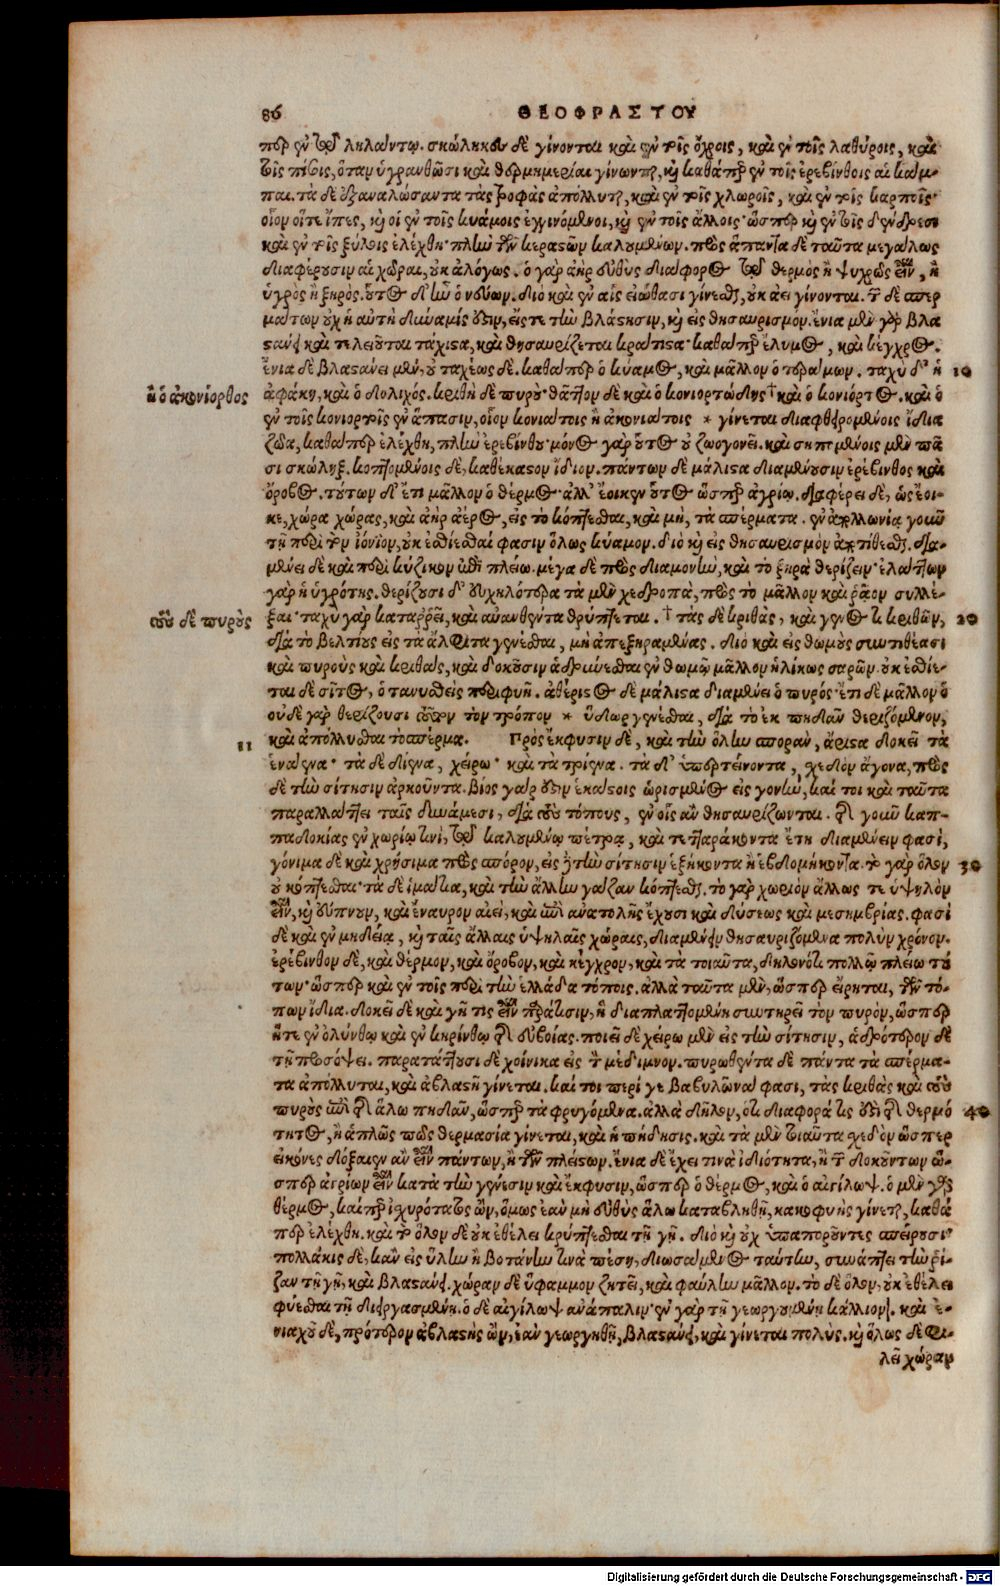 86 ΘΕΟΦΡΑΣΤΟΥ
περ ἐν τῷ ληλάντῳ. σκώληκες δὲ γίνονται καὶ ἐν τοῖς ὄχροις, καὶ ἐν τοῖς λαθύροις, καὶ
τοῖς πίσοις, ὅταν ὑγρανθῶσι καὶ θερμημερίαι γίνωνται, καὶ καθάπερ ἐν τοῖς ἐρεβίνθοις αἱ κάμ-
παι. τὰ δὲ ἐξαναλώσαντα τὰς τροφὰς ἀπόλλυται, καὶ ἐν τοῖς χλωροῖς, καὶ ἐν τοῖς καρποῖς·
οἷον οἵτε ἶπες, καὶ οἱ ἐν τοῖς κυάμοις ἐγγινόμενοι, καὶ ἐν τοῖς ἄλλοις· ὥσπερ καὶ ἐν τοῖς δένδρεσι
καὶ ἐν τοῖς ξύλοις ἐλέχθη· πλὴν τῶν κεραστῶν καλουμένων. πρὸς ἅπαντα δὲ ταῦτα μεγάλως
διαφέρουσιν αἱ χῶραι, οὐκ ἀλόγως. ὁ γὰρ ἀὴρ εὐθὺς διάφορος τῷ θερμὸς ἢ ψυχρὸς εἶναι, ἢ
ὑγρὸς ἢ ξηρός. οὗτος δ' ἦν ὁ γεννῶν. διὸ καὶ ἐν αἷς εἰώθασι γίνεσθαι, οὐκ ἀεὶ γίνονται. τῶν δὲ σπερ
μάτων οὐχ ἡ αὐτὴ δύναμίς ἐστιν, εἴς τε τὴν βλάστησιν, καὶ εἰς θησαυρισμόν. ἔνια μὲν γὰρ βλα
στάνει καὶ τελειοῦται τάχιστα, καὶ θησαυρίζεται κράτιστα· καθάπερ ἔλυμος, καὶ κέγχρος.
ἔνια δὲ βλαστάνει μὲν, οὐ ταχέως δὲ. καθάπερ ὁ κύαμος, καὶ μᾶλλον ὁ τεράμων. ταχὺ δ' ἡ 10
ἢ ὁ ἀκονίορθος ἀφάκη, καὶ ὁ δολιχός. κριθὴ δὲ πυροῦ θᾶττον δὲ καὶ ὁ κονιορτώδης † καὶ ὁ κονιόρτος. καὶ ὁ
ἐν τοῖς κονιορτοῖς ἐν ἅπασιν, οἷον κονιάτοις ἢ ἀκονιάτοις * γίνεται διαφθειρομένοις ἴδια
ζῶα, καθάπερ ἐλέχθη, πλὴν ἐρεβίνθου· μόνος γὰρ οὗτος οὐ ζωογονεῖ. καὶ σηπομένοις μὲν πᾶ
σι σκώληξ. κοπτομένοις δὲ, καθέκαστον ἴδιον. πάντων δὲ μάλιστα διαμένουσιν ἐρέβινθος καὶ
ὄροβος. τούτων δ' ἔτι μᾶλλον ὁ θέρμος· ἀλλ' ἔοικεν οὗτος ὥσπερ ἀγρίῳ. διαφέρει δὲ, ὡς ἔοι-
κε, χώρα χώρας, καὶ ἀὴρ ἀέρος, εἰς τὸ κόπτεσθαι, καὶ μὴ, τὰ σπέρματα. ἐν ἀπολλωνίᾳ γοῦν
τῇ περὶ τὸν ἰόνιον, οὐκ ἐσθίεσθαί φασιν ὅλως κύαμον. διὸ καὶ εἰς θησαυρισμὸν ἀποτίθεσθαι. δια-
μένει δὲ καὶ περὶ κύζικον ἐπὶ πλείω. μέγα δὲ πρὸς διαμονὴν, καὶ τὸ ξηρὰ θερίζειν· ἐλάττων
γὰρ ἡ ὑγρότης. θερίζουσι δ' εὐχυλότερα τὰ μὲν χεδροπὰ, πρὸς τὸ μᾶλλον καὶ ῥᾷον συλλέ-
τοὺς δὲ πυροὺς ξαι· ταχὺ γὰρ καταῤῥεῖ, καὶ αὐανθέντα θρύπτεται. † τὰς δὲ κριθὰς, καὶ γένος τι κριθῶν, 20
διὰ τὸ βελτίους εἰς τὰ ἄλφιτα γενέσθαι, μὴ ἀπεξηραμμένας. διὸ καὶ εἰς θωμοὺς συντιθέασι
καὶ πυροὺς καὶ κριθὰς, καὶ δοκοῦσιν ἁδρύνεσθαι ἐν θωμῷ μᾶλλον ἡλίκως σαρῶν. οὐκ ἐσθίε-
ται δὲ σῖτος, ὁ τανυσθεὶς περιφυῇ. ἀθέριστος δὲ μάλιστα διαμένει ὁ πυρός· ἔτι δὲ μᾶλλον ὁ
οὐδὲ γὰρ θερίζουσι αὐτὸν τὸν τρόπον * ὕδωρ γενέσθαι, διὰ τὸ ἐκ πηδᾶν θεριζόμενον,
11 καὶ ἀπόλλυσθαι τὸ σπέρμα. Πρὸς ἔκφυσιν δὲ, καὶ τὴν ὅλην σποράν, ἄριστα δοκεῖ τὰ
ἔναενα· τὰ δὲ δίενα, χείρω· καὶ τὰ τρίενα. τὰ δ' ὑπερτείνοντα, σχεδὸν ἄγονα, πρὸς
δὲ τὴν σίτησιν ἀρκοῦντα. βίος γάρ ἐστιν ἑκάστοις ὡρισμένος εἰς γονὴν, καί τοι καὶ ταῦτα
παραλλάττει ταῖς δυνάμεσι, διὰ τοὺς τόπους, ἐν οἷς ἂν θησαυρίζωνται. τῆς γοῦν καπ-
παδοκίας ἐν χωρίῳ τινὶ, τῷ καλουμένῳ πέτρᾳ, καὶ τετταράκοντα ἔτη διαμένειν φασὶ,
γόνιμα δὲ καὶ χρήσιμα πρὸς σπόρον, εἰς δὲ τὴν σίτησιν ἑξήκοντα ἢ ἑβδομήκοντα. τὸ γὰρ ὅλον 30
οὐ κόπτεσθαι· τὰ δὲ ἱμάτια, καὶ τὴν ἄλλην γάζαν κόπτεσθαι. τὸ γὰρ χωρίον ἄλλως τε ὑψηλὸν
εἶναι, καὶ εὔπνουν, καὶ ἔναυρον αἰεὶ, καὶ ἀπὸ ἀνατολῆς ἔχουσι καὶ δύσεως καὶ μεσημβρίας. φασὶ
δὲ καὶ ἐν μηδείᾳ, καὶ ταῖς ἄλλαις ὑψηλαῖς χώραις, διαμένειν θησαυριζόμενα πολὺν χρόνον.
ἐρέβινθον δὲ, καὶ θέρμον, καὶ ὄροβον, καὶ κέγχρον, καὶ τὰ τοιαῦτα, δηλονότι πολλῷ πλείω τού
των· ὥσπερ καὶ ἐν τοῖς περὶ τὴν ἑλλάδα τόποις. ἀλλὰ ταῦτα μὲν, ὥσπερ εἴρηται, τῶν τό-
πων ἴδια. δοκεῖ δὲ καὶ γῆ τις εἶναι πρᾶτισιν, ἣ διαπλαττομένη συντηρεῖ τὸν πυρόν, ὥσπερ
ἥτε ἐν ὀλύνθῳ καὶ ἐν κηρίνθῳ τῆς εὐβοίας. ποιεῖ δὲ χείρω μὲν εἰς τὴν σίτησιν, ἁδρότερον δὲ
τῇ προσόψει. παρατάττουσι δὲ χοίνικα εἰς τὸν μέδιμνον. πυρωθέντα δὲ πάντα τὰ σπέρμα-
τα ἀπόλλυται, καὶ ἀβλαστῆ γίνεται. καί τοι περί γε βαβυλῶνα φασι, τὰς κριθὰς καὶ τοὺς
πυροὺς ἀπὸ τῆς ἅλω πηδᾶν, ὥσπερ τὰ φρυγόμενα. ἀλλὰ δῆλον, ὅτι διαφορά τις ἐστὶ τῆς θερμό 40
τητος, ἢ ἁπλῶς πῶς θερμασία γίνεται, καὶ ἡ πήδησις. καὶ τὰ μὲν τοιαῦτα σχεδὸν ὥσπερ
εἰκόνες δόξαιεν ἂν εἶναι πάντων, ἢ τῶν πλείστων. ἔνια δὲ ἔχει τινὰ ἰδιότητα, ἢ τῶν δοκούντων ὥ-
σπερ ἀγρίων εἶναι κατὰ τὴν γένεσιν καὶ ἔκφυσιν, ὥσπερ ὁ θέρμος, καὶ ὁ αἰγίλωψ. ὁ μὲν γὰρ
θέρμος, καίπερ ἰσχυρότατος ὢν, ὅμως ἐὰν μὴ εὐθὺς ἅλω καταβληθῇ, κακοφυὴς γίνεται, καθά
περ ἐλέχθη. καὶ τὸ ὅλον δὲ οὐκ ἐθέλει κρύπτεσθαι τῇ γῇ. διὸ καὶ οὐχ ὑπαποροῦντες σπείρουσι·
πολλάκις δὲ, κἂν εἰς ὕλην ἢ βοτάνην τινὰ πέσῃ, διωσάμενος ταύτην, συνάπτει τὴν ῥί-
ζαν τῇ γῇ, καὶ βλαστάνει. χώραν δὲ ὕφαμμον ζητεῖ, καὶ φαύλην μᾶλλον. τὸ δὲ ὅλον, οὐκ ἐθέλει
φύεσθαι τῇ διειργασμένῃ. ὁ δὲ αἰγίλωψ ἀνάπαλιν· ἐν γὰρ τῇ γεωργουμένῃ κάλλιον. καὶ ἐ-
νιαχοῦ δὲ, πρότερον ἀβλαστὴς ὢν, ἐὰν γεωργηθῇ, βλαστάνει, καὶ γίνεται πολύς. καὶ ὅλως δὲ φι-
λεῖ χώραν
Digitalisierung gefördert durch die Deutsche Forschungsgemeinschaft - DFG